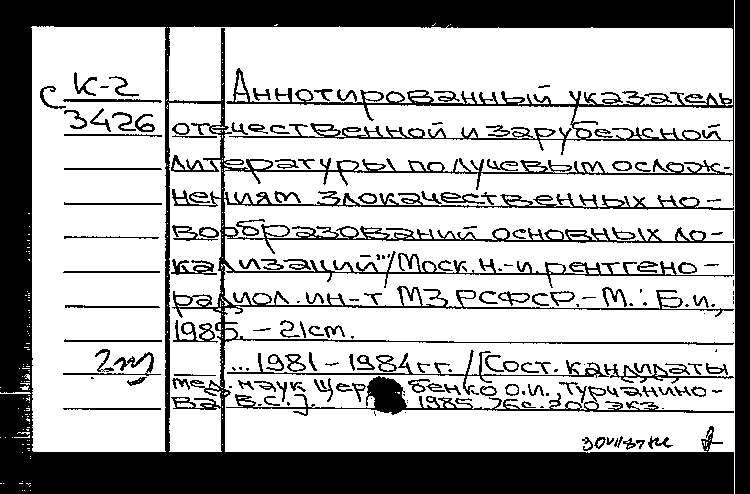 К-2 Аннотированный указатель
С 3426 отечественной и зарубежной
литературы по лучевым ослож-
нениям злокачественных но-
вообразований основных ло-
кализаций"/Моск. н.-и. рентгено-
радиол. ин-т МЗ РСФСР.-М.: Б.и.,
1985. - 21 cm.
2 ...1981-1984 гг. /[Сост. кандидаты
мед. наук Щербенко О.И., Турчанино-
ва В.С.]. 1985. 76с. 200 экз.